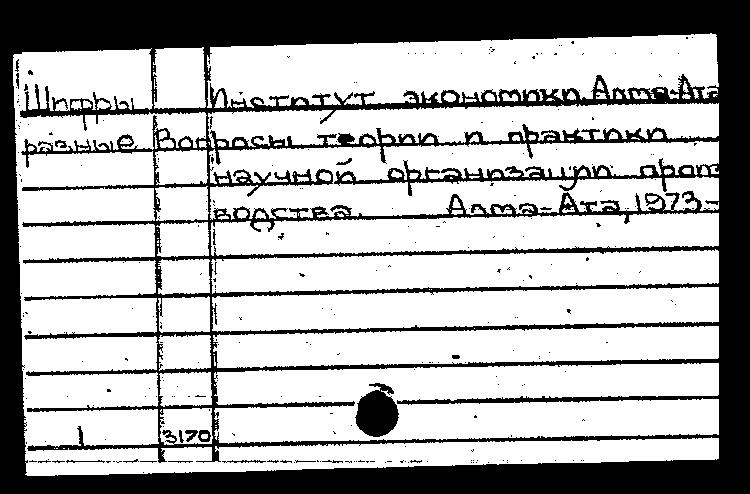 Шифры Институт экономики. Алма-Ата
разные Вопросы теории и практики
научной организации произ
водства. Алма-Ата, 1973-
1 3170